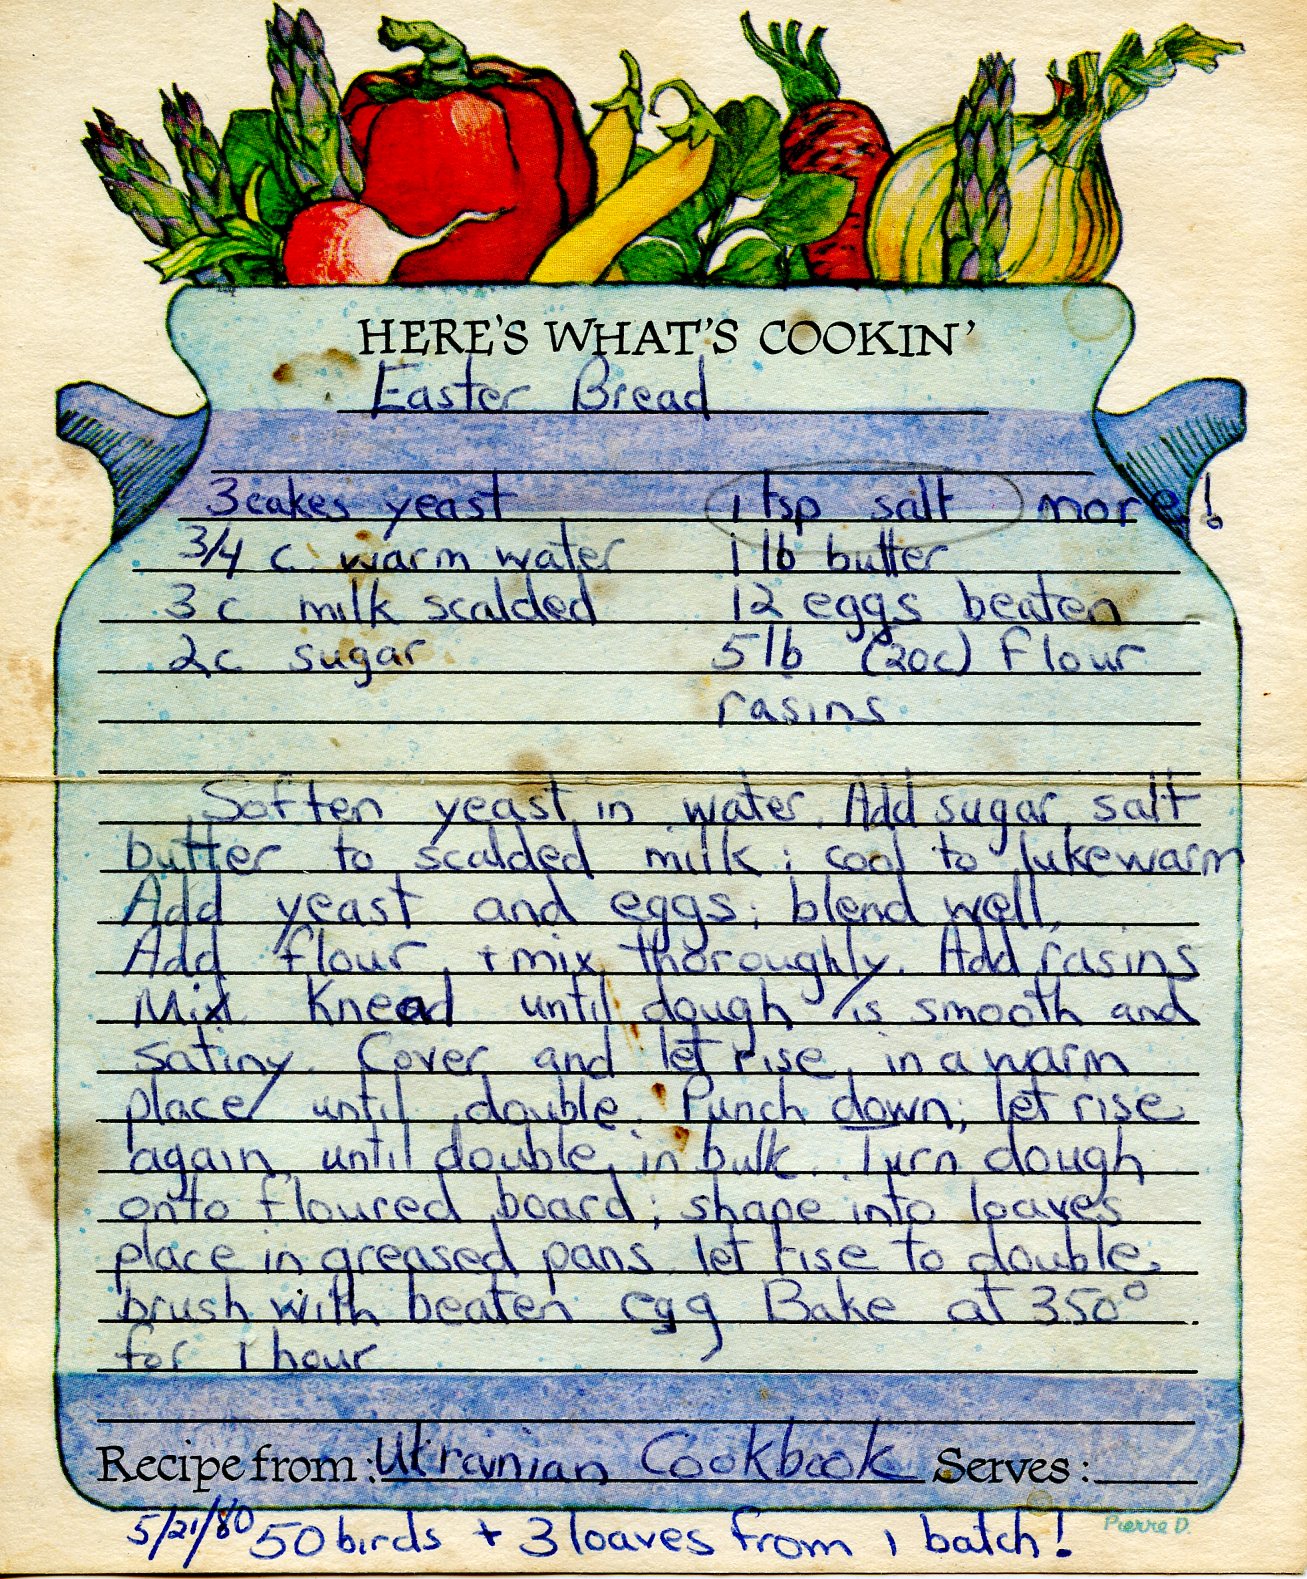 HERE'S WHAT'S COOKIN'
Easter Bread
3 cakes yeast 1 tsp salt more!
3/4 c. warm water 1 lb butter
3 c milk scalded 12 eggs beaten
2 c sugar 5 lb (20c) flour
rasins
Soften yeast in water. Add sugar, salt
butter to scalded milk; cool to lukewarm
Add yeast and eggs; blend well.
Add flour, + mix thoroughly. Add rasins
Mix Knead until dough is smooth and
satiny. Cover and let rise in a warm
place until double. Punch down; let rise
again until double in bulk. Turn dough
onto floured board; shape into loaves
place in greased pans. let rise to double.
brush with beaten egg Bake at 350°
for 1 hour
Recipe from: Ukranian Cookbook Serves:
5/21/80 50 birds + 3 loaves from 1 batch!
Pierre D.